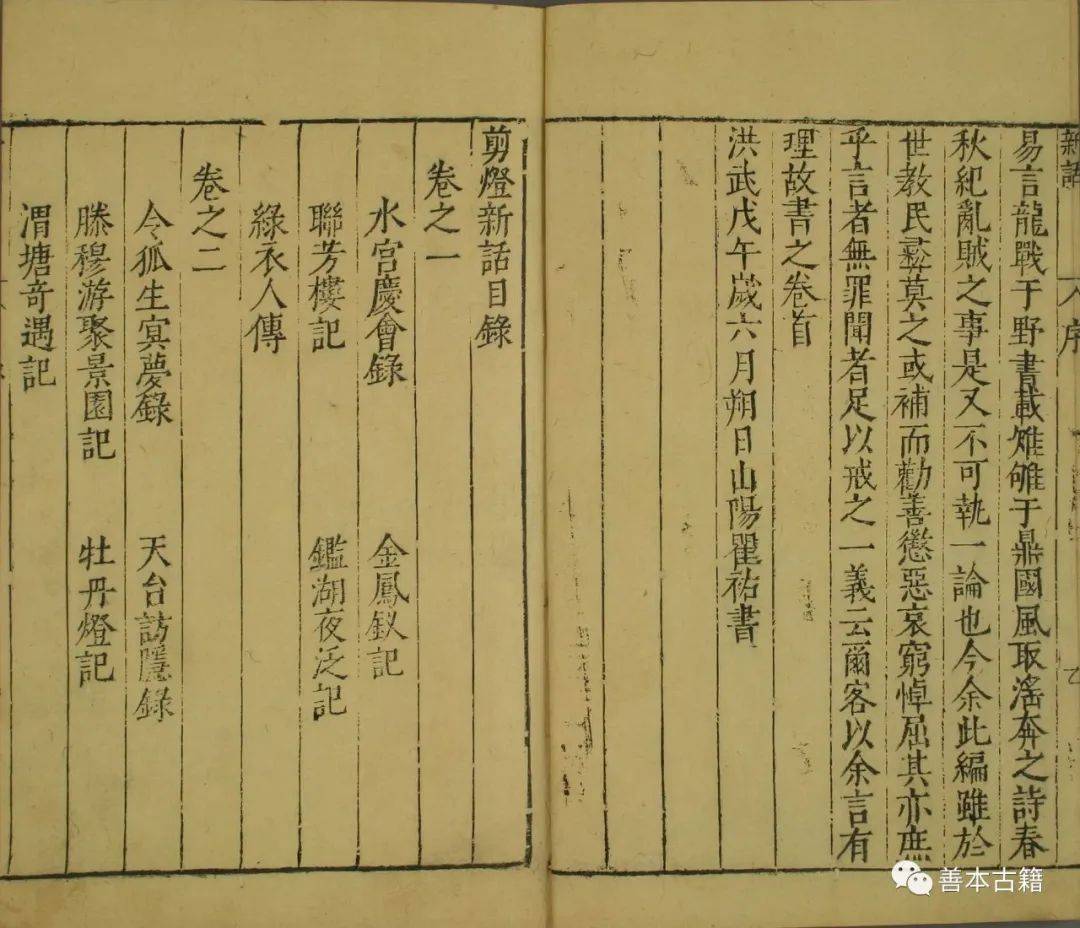 新話
序
易言龍戰于野書載雉雊于鼎國風取淫奔之詩春
秋紀亂賊之事是又不可執一論也今余此編雖於
世教民彝莫之或補而勸善懲惡哀窮悼屈其亦庶
乎言者無罪聞者足以戒之一義云爾客以余言有
理故書之卷首
洪武戊午歲六月朔日山陽瞿祐書
剪燈新話目錄
卷之一
水宮慶會錄 金鳳釵記
聯芳樓記 鑑湖夜泛記
綠衣人傳
卷之二
令狐生冥夢錄 天台訪隱錄
滕穆游聚景園記 牡丹燈記
渭塘奇遇記
善本古籍